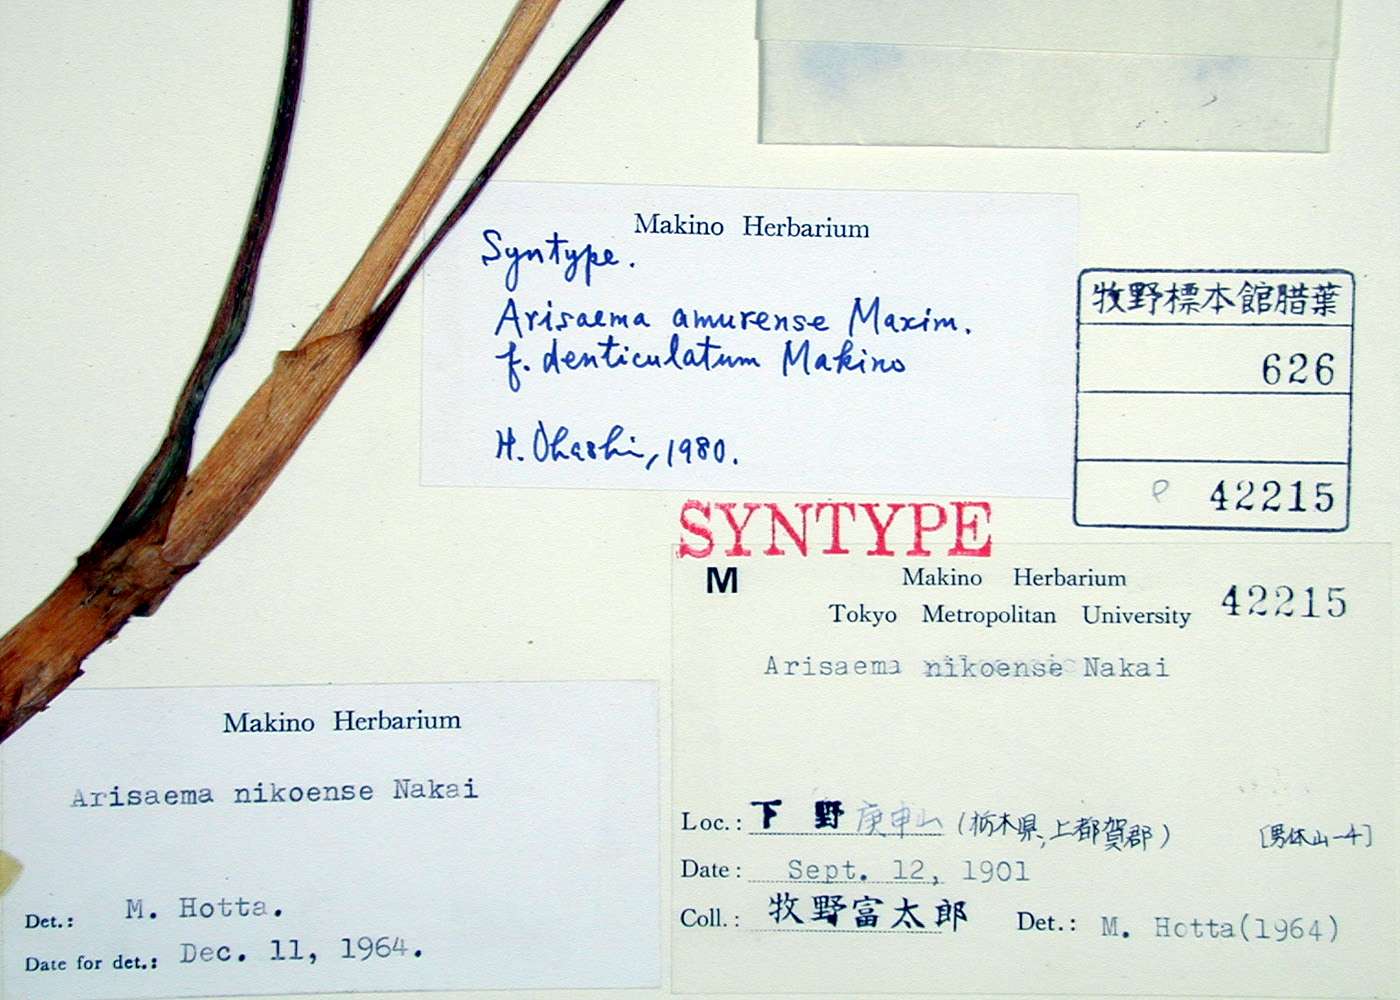 Makino Herbarium
Syntype.
Arisaema amurense Maxim.
f. denticulatum Makino
H. Ohashi, 1980.
牧野標本館腊葉
626
P 42215
SYNTYPE
M
Makino Herbarium
Tokyo Metropolitan University 42215
Arisaema nikoense Nakai
Loc.: 下野 庚申山 (栃木県, 上都賀郡) [男体山-4]
Date: Sept. 12, 1901
Coll.: 牧野富太郎 Det.: M. Hotta(1964)
Makino Herbarium
Arisaema nikoense Nakai
Det.: M. Hotta.
Date for det.: Dec. 11, 1964.